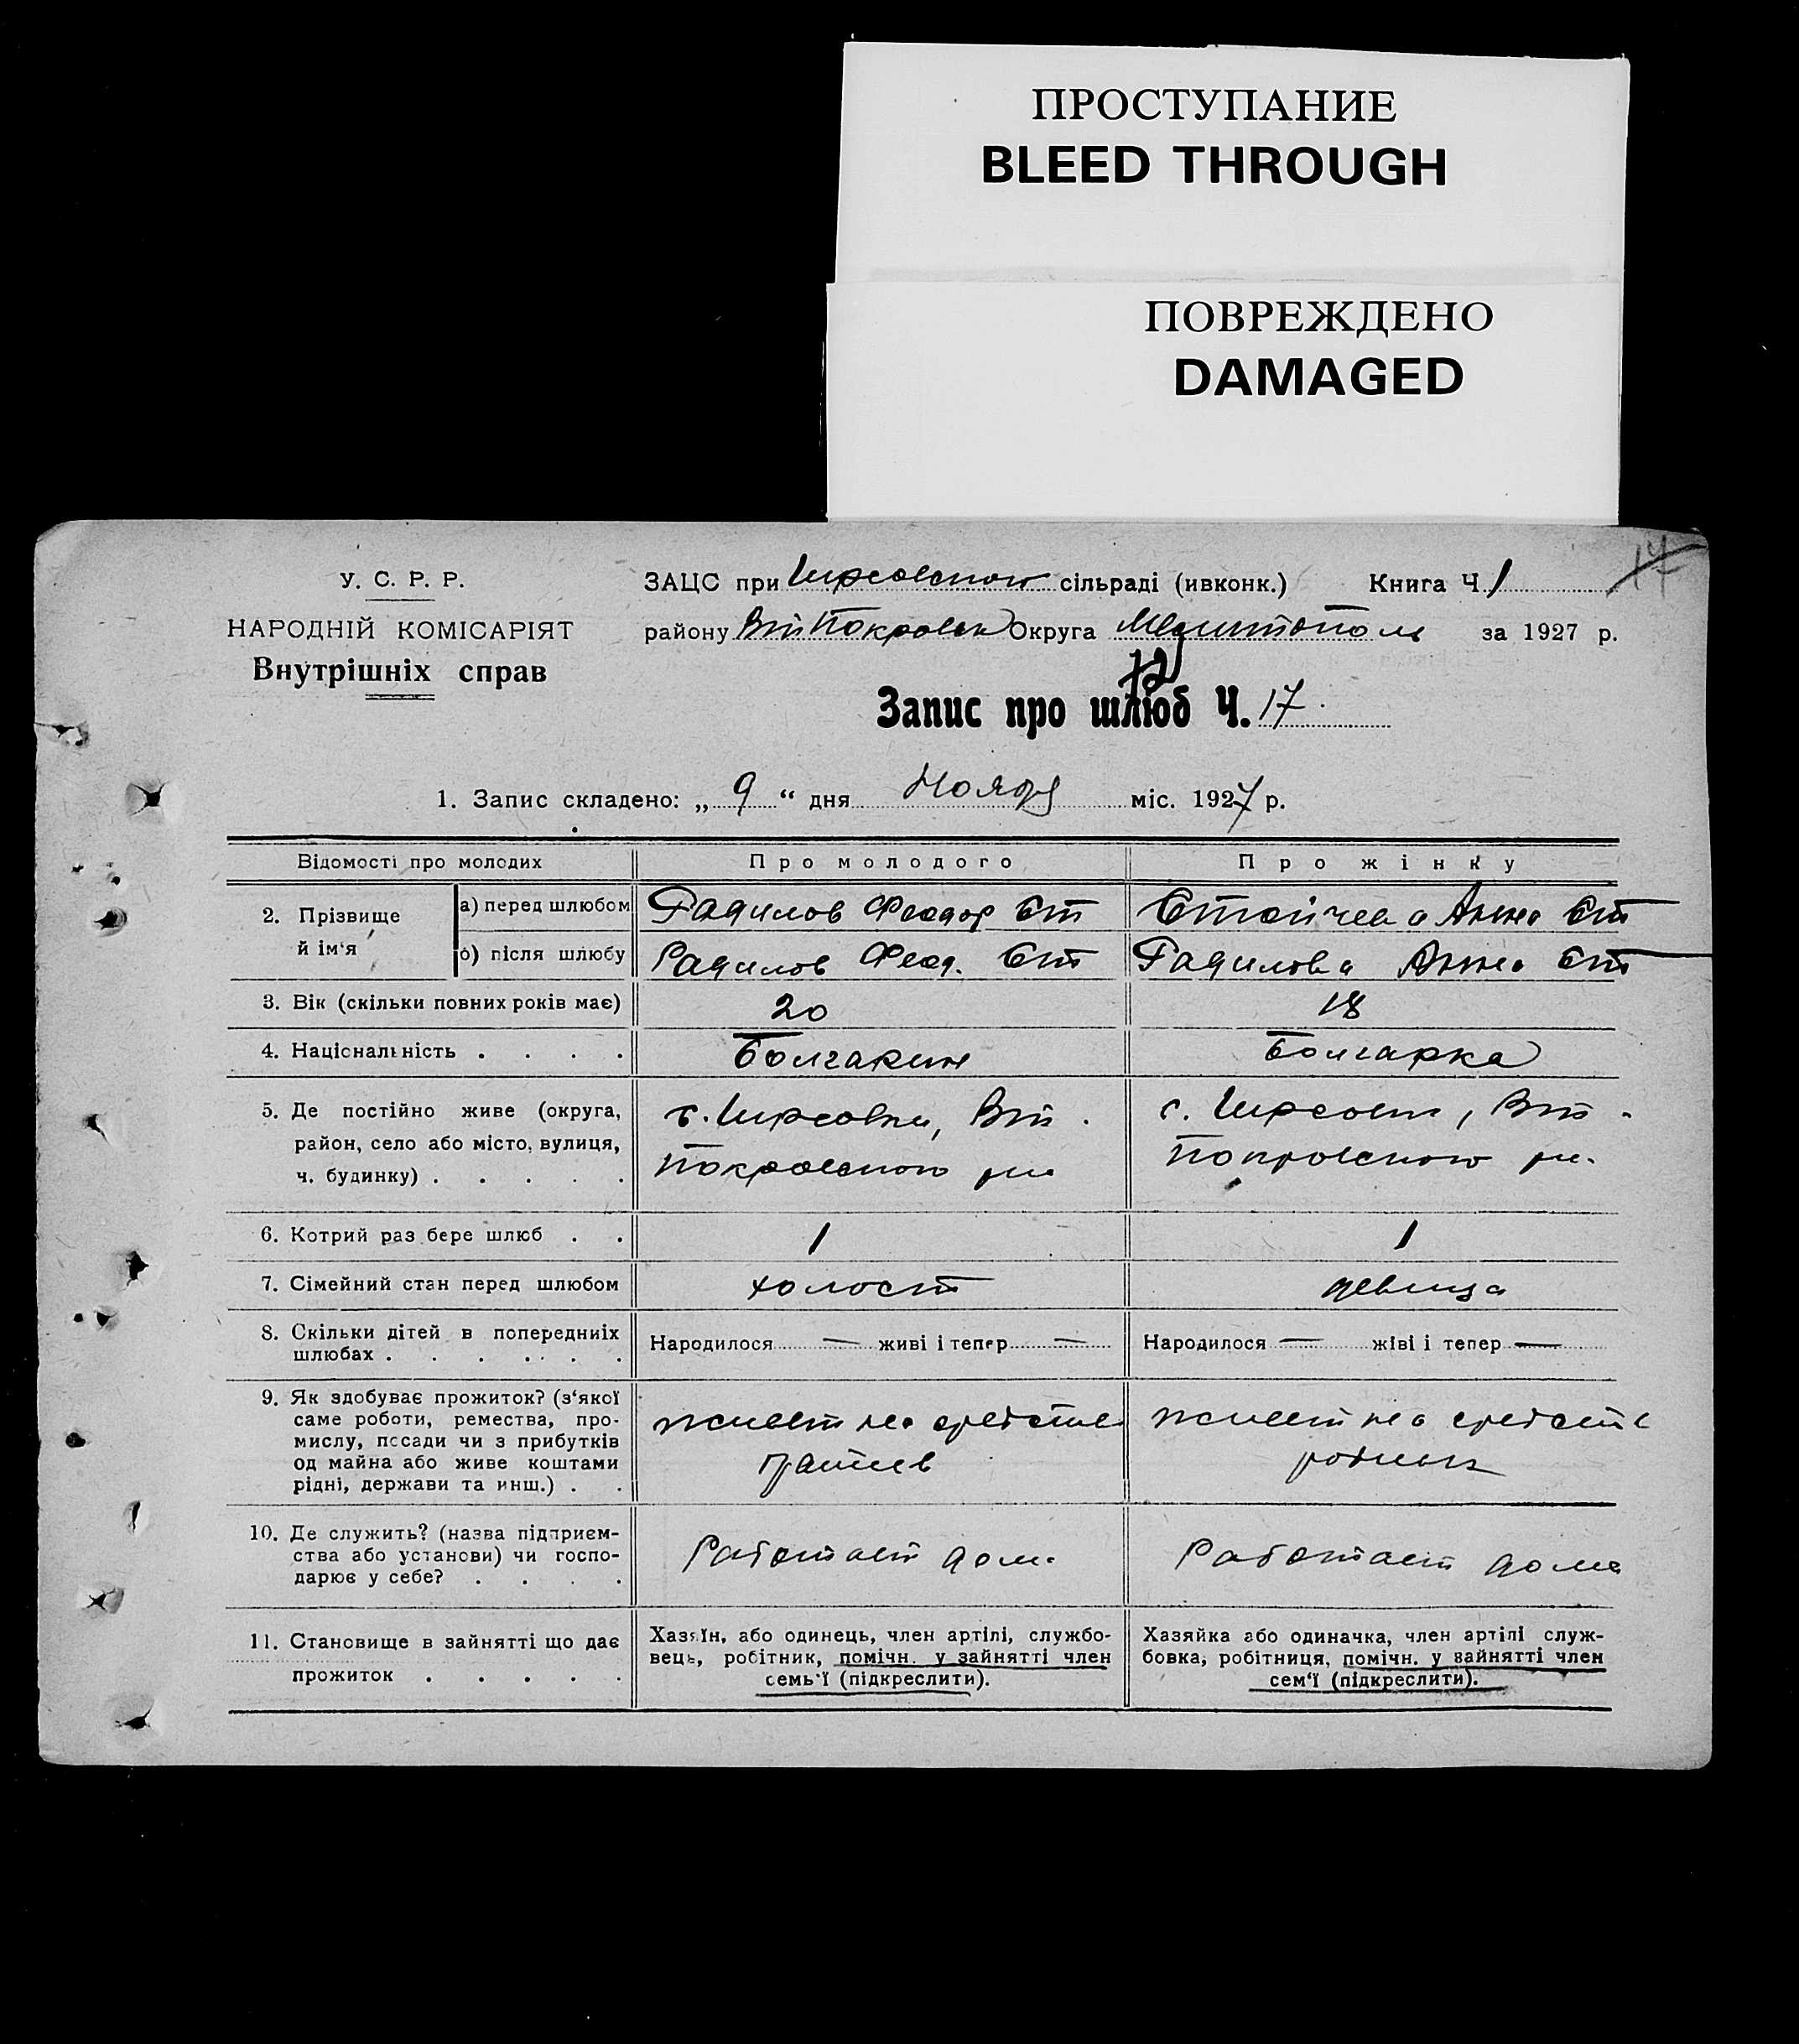 ПРОСТУПАНИЕ
BLEED THROUGH
ПОВРЕЖДЕНО
DAMAGED
17
У. С. Р. Р.
НАРОДНІЙ КОМІСАРІЯТ
Внутрішніх справ
ЗАЦС при Гирсовском сільраді (ивконк.) Книга Ч. 1
району Вт Покровск Округа Мелитополь за 1927 р.
72
Запис про шлюб Ч. 17.
1. Запис складено: „ 9 “ дня Ноября міс. 1927 р.
Відомості про молодих Про молодого Про жінку
2. Прізвище й ім‘я
а) перед шлюбом Радилов Феодор Ст Стойчева Анна Ст
б) після шлюбу Радилов Феод. Ст Радилова Анна Ст
3. Вік (скільки повних років має) 20 18
4. Національність . . . . Болгарин Болгарка
5. Де постійно живе (округа, с. Гирсовки, Вт. с. Гирсовки, Вт.
район, село або місто, вулиця, Покровского Покровского
ч. будинку) . . . . .
6. Котрий раз бере шлюб . . 1 1
7. Сімейний стан перед шлюбом холост девица
8. Скільки дітей в попередниіх Народилося — живі і тепер — Народилося — жіві і тепер —
шлюбах . . . . . .
9. Як здобуває прожиток? (з‘якої живет на средства живет на средств
саме роботи, ремества, про-
мислу, посади чи з прибутків
од майна або живе коштами
рідні, держави та инш.) . .
10. Де служить? (назва підприєм-
ства або установи) чи госпо- Работает дома Работает дома
дарює у себе? . . . .
11. Становище в зайнятті що дає
прожиток . . . . .
Хазяїн, або одинець, член артілі, службо-
вець, робітник, помічн. у зайнятті член
семь‘ї (підкреслити).
Хазяйка або одиначка, член артілі служ-
бовка, робітниця, помічн. у зайнятті член
сем‘ї (підкреслити).